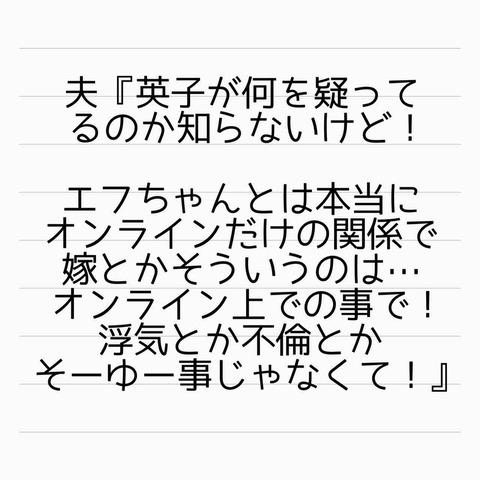 夫『英子が何を疑って
るのか知らないけど！
エフちゃんとは本当に
オンラインだけの関係で
嫁とかそういうのは…
オンライン上での事で！
浮気とか不倫とか
そーゆー事じゃなくて！』